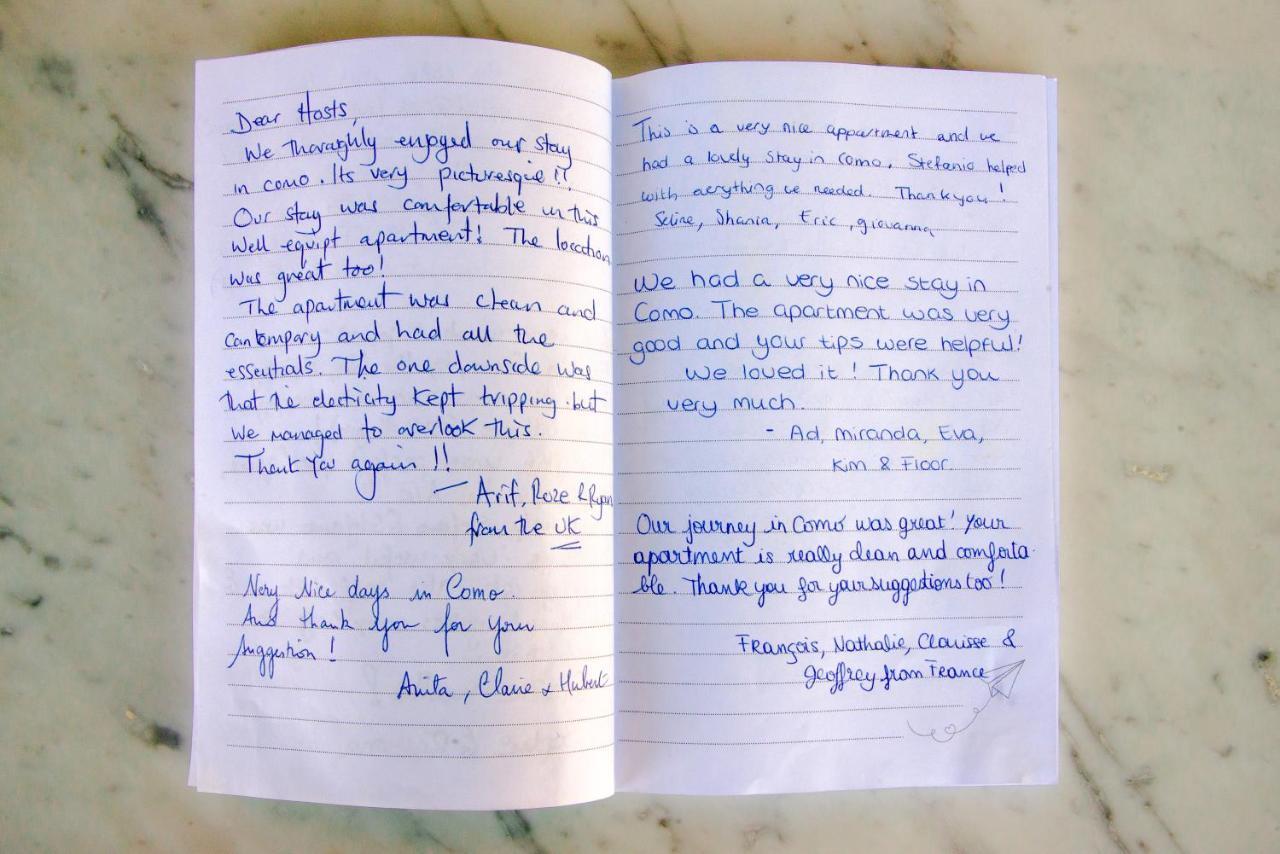 Dear Hosts,
We thoraghly enjoyed our stay
in como. Its very picturesque!!
Our stay was comfortable in this
well equipt apartment! The location
was great too!
The apartment was clean and
contempary and had all the
essentials. The one downside was
that the electicity kept tripping but
we managed to overlook this.
Thank You again!!
— Arif, Roze & Ryan
from the UK
Very Nice days in Como.
And thank you for your
suggestion!
Anita, Claire & Hubert
This is a very nice appartment and we
had a lovely stay in como. Stefanio helped
with aerything we needed. Thankyou!
Seline, Shania, Eric, giovanna
We had a very nice stay in
Como. The apartment was very
good and your tips were helpful!
We loved it! Thank you
very much.
- Ad, miranda, Eva,
Kim & Floor.
Our journey in Como was great! Your
apartment is really clean and comforta
ble. Thank you for your suggestions too!
François, Nathalie, Clarisse &
Geoffrey from France